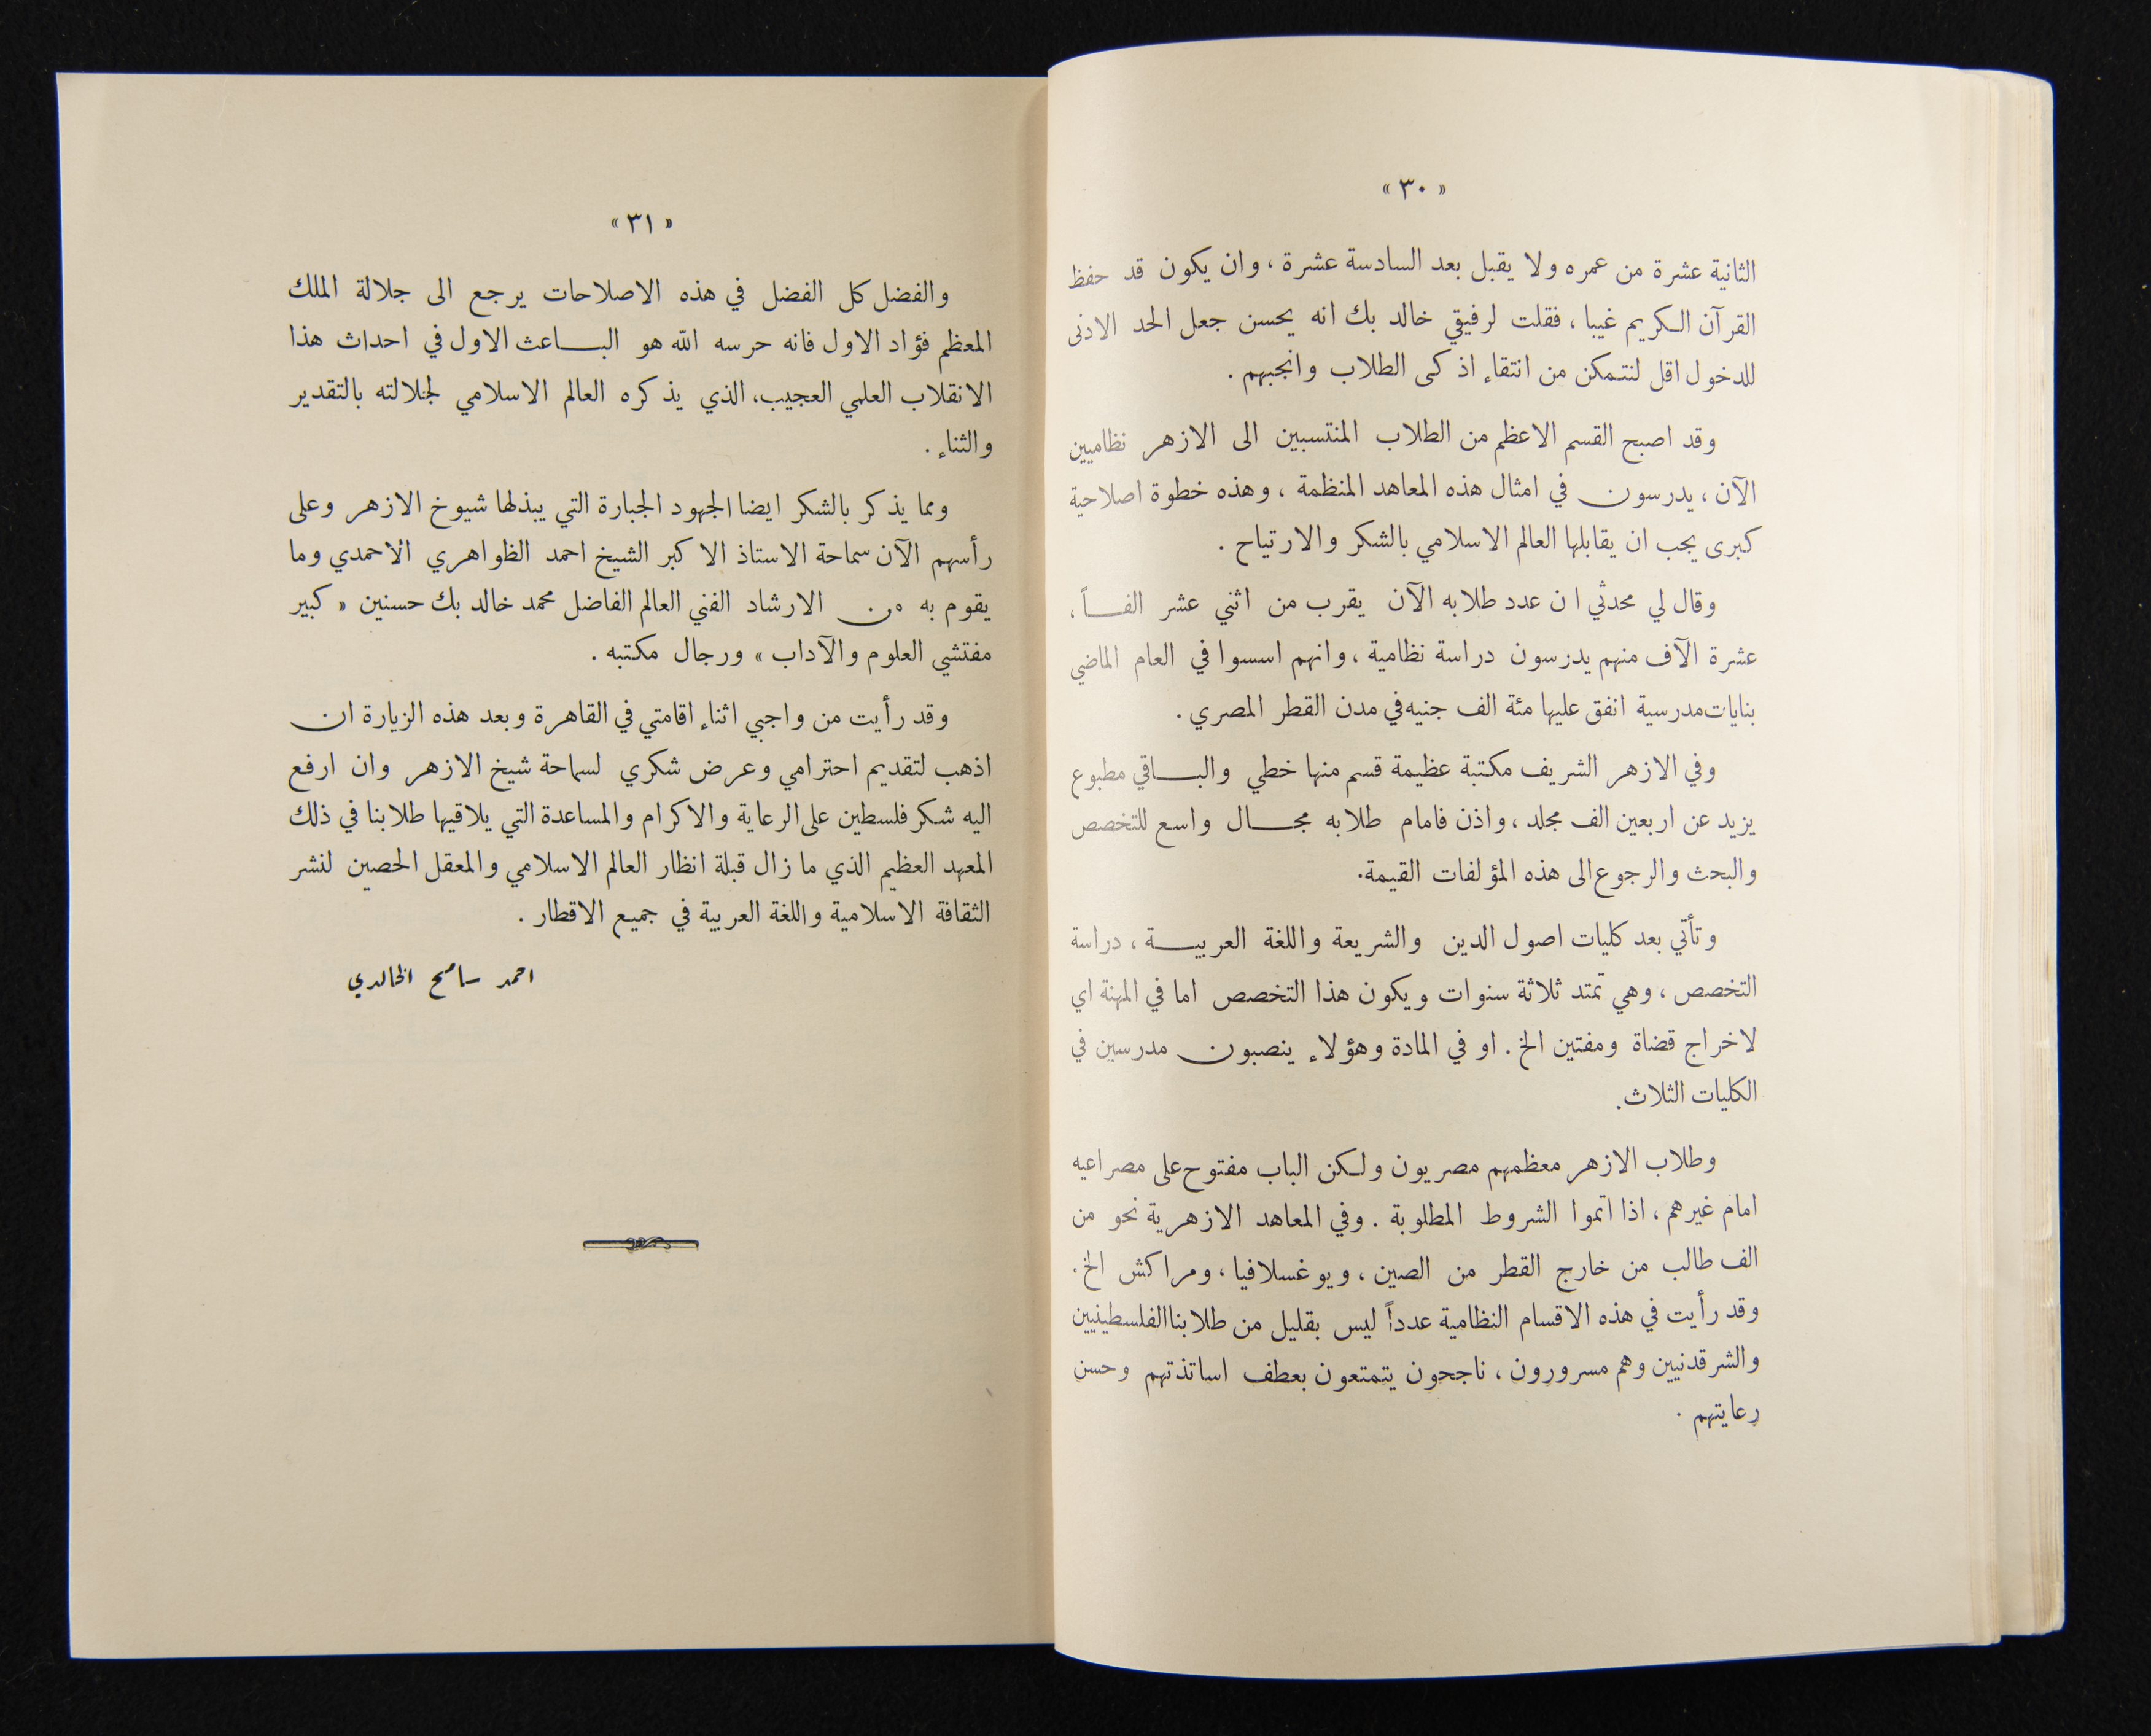 « ٣٠ »
الثانية عشرة من عمره ولا يقبل بعد السادسة عشرة ، وان يكون قد حفظ
القرآن الكريم غيبا ، فقلت لرفيقي خالد بك انه يحسن جعل الحد الادنى
للدخول اقل لنتمكن من انتقاء اذكى الطلاب وانجبهم .
وقد اصبح القسم الاعظم من الطلاب المنتسبين الى الازهر نظاميين
الآن ، يدرسون في امثال هذه المعاهد المنظمة ، وهذه خطوة اصلاحية
كبرى يجب ان يقابلها العالم الاسلامي بالشكر والارتياح .
وقال لي محدثي ان عدد طلابه الآن يقرب من اثني عشر الفاً ،
عشرة الآف منهم يدرسون دراسة نظامية ، وانهم اسسوا في العام الماضي
بنايات مدرسية انفق عليها مئة الف جنيه في مدن القطر المصري .
وفي الازهر الشريف مكتبة عظيمة قسم منها خطي والباقي مطبوع
يزيد عن اربعين الف مجلد ، واذن فامام طلابه مجال واسع للتخصص
والبحث والرجوع الى هذه المؤلفات القيمة .
وتأتي بعد كليات اصول الدين والشريعة واللغة العربية ، دراسة
التخصص ، وهي تمتد ثلاثة سنوات ويكون هذا التخصص اما في المهنة اي
لاخراج قضاة ومفتين الخ . او في المادة وهؤلاء ينصبون مدرسين في
الكليات الثلاث .
وطلاب الازهر معظمهم مصريون ولكن الباب مفتوح على مصراعيه
امام غيرهم ، اذا اتموا الشروط المطلوبة . وفي المعاهد الازهرية نحو من
الف طالب من خارج القطر من الصين ، ويوغسلافيا ، ومراكش الخ .
وقد رأيت في هذه الاقسام النظامية عدداً ليس بقليل من طلابنا الفلسطينيين
والشرقدنيين وهم مسرورون ، ناجحون يتمتعون بعطف اساتذتهم وحسن
رعايتهم .
« ٣١ »
والفضل كل الفضل في هذه الاصلاحات يرجع الى جلالة الملك
المعظم فؤاد الاول فانه حرسه الله هو الباعث الاول في احداث هذا
الانقلاب العلمي العجيب ، الذي يذكره العالم الاسلامي لجلالته بالتقدير
والثناء .
ومما يذكر بالشكر ايضا الجهود الجبارة التي يبذلها شيوخ الازهر وعلى
رأسهم الآن سماحة الاستاذ الاكبر الشيخ احمد الظواهري الاحمدي وما
يقوم به من الارشاد الفني العالم الفاضل محمد خالد بك حسنين « كبير
مفتشي العلوم والآداب » ورجال مكتبه .
وقد رأيت من واجبي اثناء اقامتي في القاهرة وبعد هذه الزيارة ان
اذهب لتقديم احترامي وعرض شكري لسماحة شيخ الازهر وان ارفع
اليه شكر فلسطين على الرعاية والاكرام والمساعدة التي يلاقيها طلابنا في ذلك
المعهد العظيم الذي ما زال قبلة انظار العالم الاسلامي والمعقل الحصين لنشر
الثقافة الاسلامية واللغة العربية في جميع الاقطار .
احمد سامح الخالدي